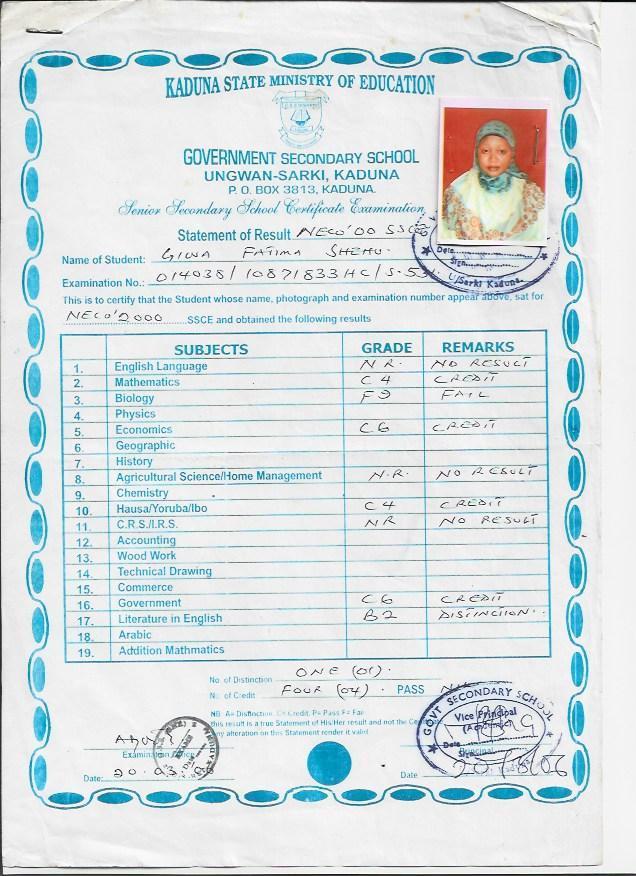 KADUNA STATE MINISTRY OF EDUCATION
GOVERNMENT SECONDARY SCHOOL
UNGWAN-SARKI, KADUNA
P. O. BOX 3813, KADUNA.
Senior Secondary School Certificate Examination
Statement of Result NECO'00 SSC
Name of Student: GIWA FATIMA SHEHU.
Examination No.: 014038/10871833HC/S.53
Date
Sign
U/Sarki Kaduna.
This is to certify that the Student whose name, photograph and examination number appear above, sat for
NECO'2000 SSCE and obtained the following results
SUBJECTS GRADE REMARKS
1. English Language N R. NO RESULT
2. Mathematics C 4 CREDIT
3. Biology F9 FAIL
4. Physics
5. Economics C6 CREDIT
6. Geographic
7. History
8. Agricultural Science/Home Management N.R. NO RESULT
9. Chemistry
10. Hausa/Yoruba/Ibo C 4 CREDIT
11. C.R.S./I.R.S. NR NO RESULT
12. Accounting
13. Wood Work
14. Technical Drawing
15. Commerce
16. Government C6 CREDIT
17. Literature in English B2 DISTINCTION.
18. Arabic
19. Addition Mathmatics
No. of Distinction ONE (01).
No. of Credit FOUR (04). PASS
NB: A= Distinction, C= Credit, P= Pass F= Fail
this result is a true Statement of His/Her result and not the
any alteration on this Statement render it valid
GOVT SECONDARY SCHOOL
Vice Principal
Date
Examination Principal
Date: 20.03. Date 20/3/06